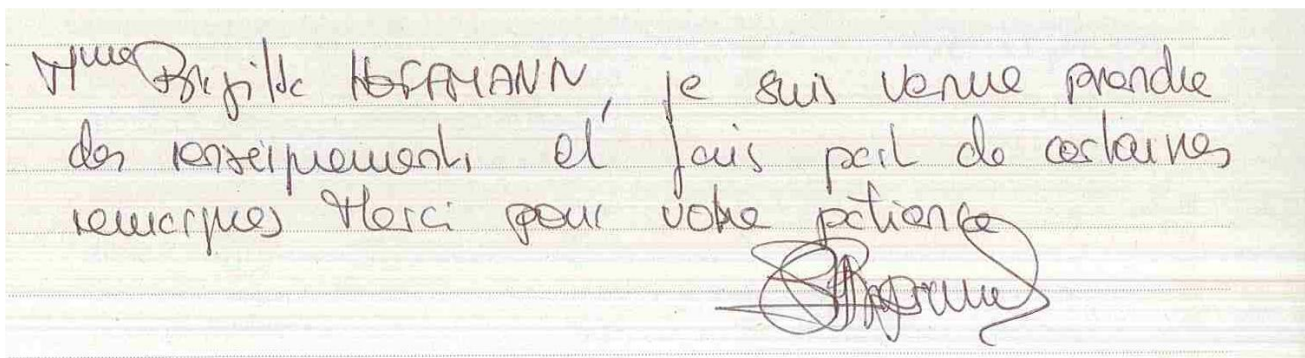 Mme Brigitte HOFFMANN, je suis venue prendre
des renseignements et fais part de certaines
remarques Merci pour votre patience